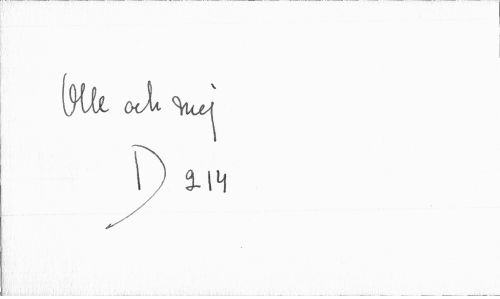 Olle och mej
D 214